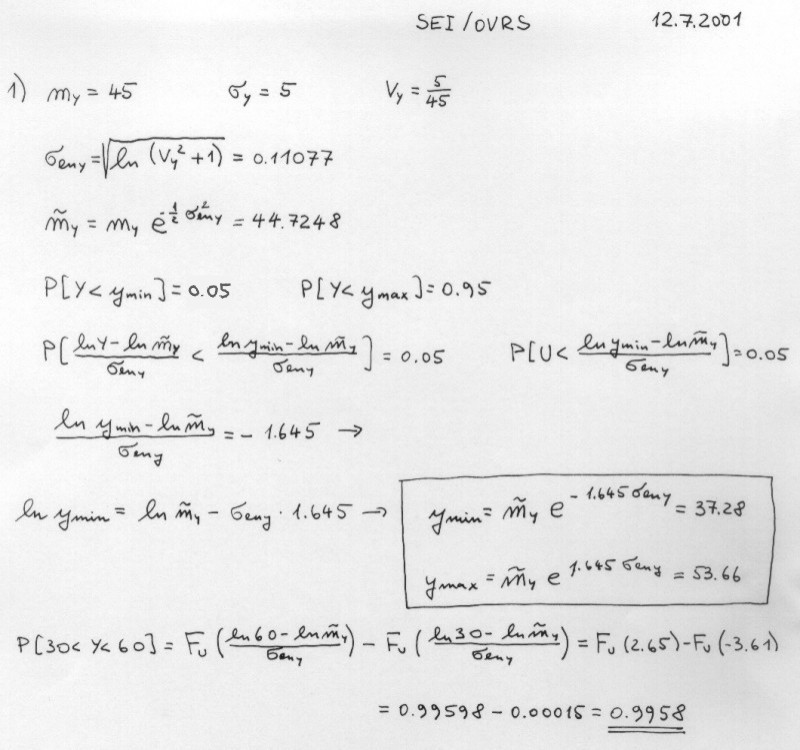 SEI/OVRS 12.7.2001
1) m_Y = 45 σ_Y = 5 V_Y = 5/45
σ_lnY = √(ln (V_Y² + 1)) = 0.11077
m̃_Y = m_Y e^(-1/2 σ²_lnY) = 44.7248
P[Y < y_min] = 0.05 P[Y < y_max] = 0.95
P[(lnY - ln m̃_Y)/σ_lnY < (ln y_min - ln m̃_Y)/σ_lnY] = 0.05 P[U < (ln y_min - ln m̃_Y)/σ_lnY] = 0.05
(ln y_min - ln m̃_Y)/σ_lnY = - 1.645 →
ln y_min = ln m̃_Y - σ_lnY · 1.645 → y_min = m̃_Y e^(-1.645 σ_lnY) = 37.28
y_max = m̃_Y e^(1.645 σ_lnY) = 53.66
P[30 < Y < 60] = F_U ((ln60 - ln m̃_Y)/σ_lnY) - F_U ((ln30 - ln m̃_Y)/σ_lnY) = F_U (2.65) - F_U (-3.61)
= 0.99598 - 0.00015 = 0.9958